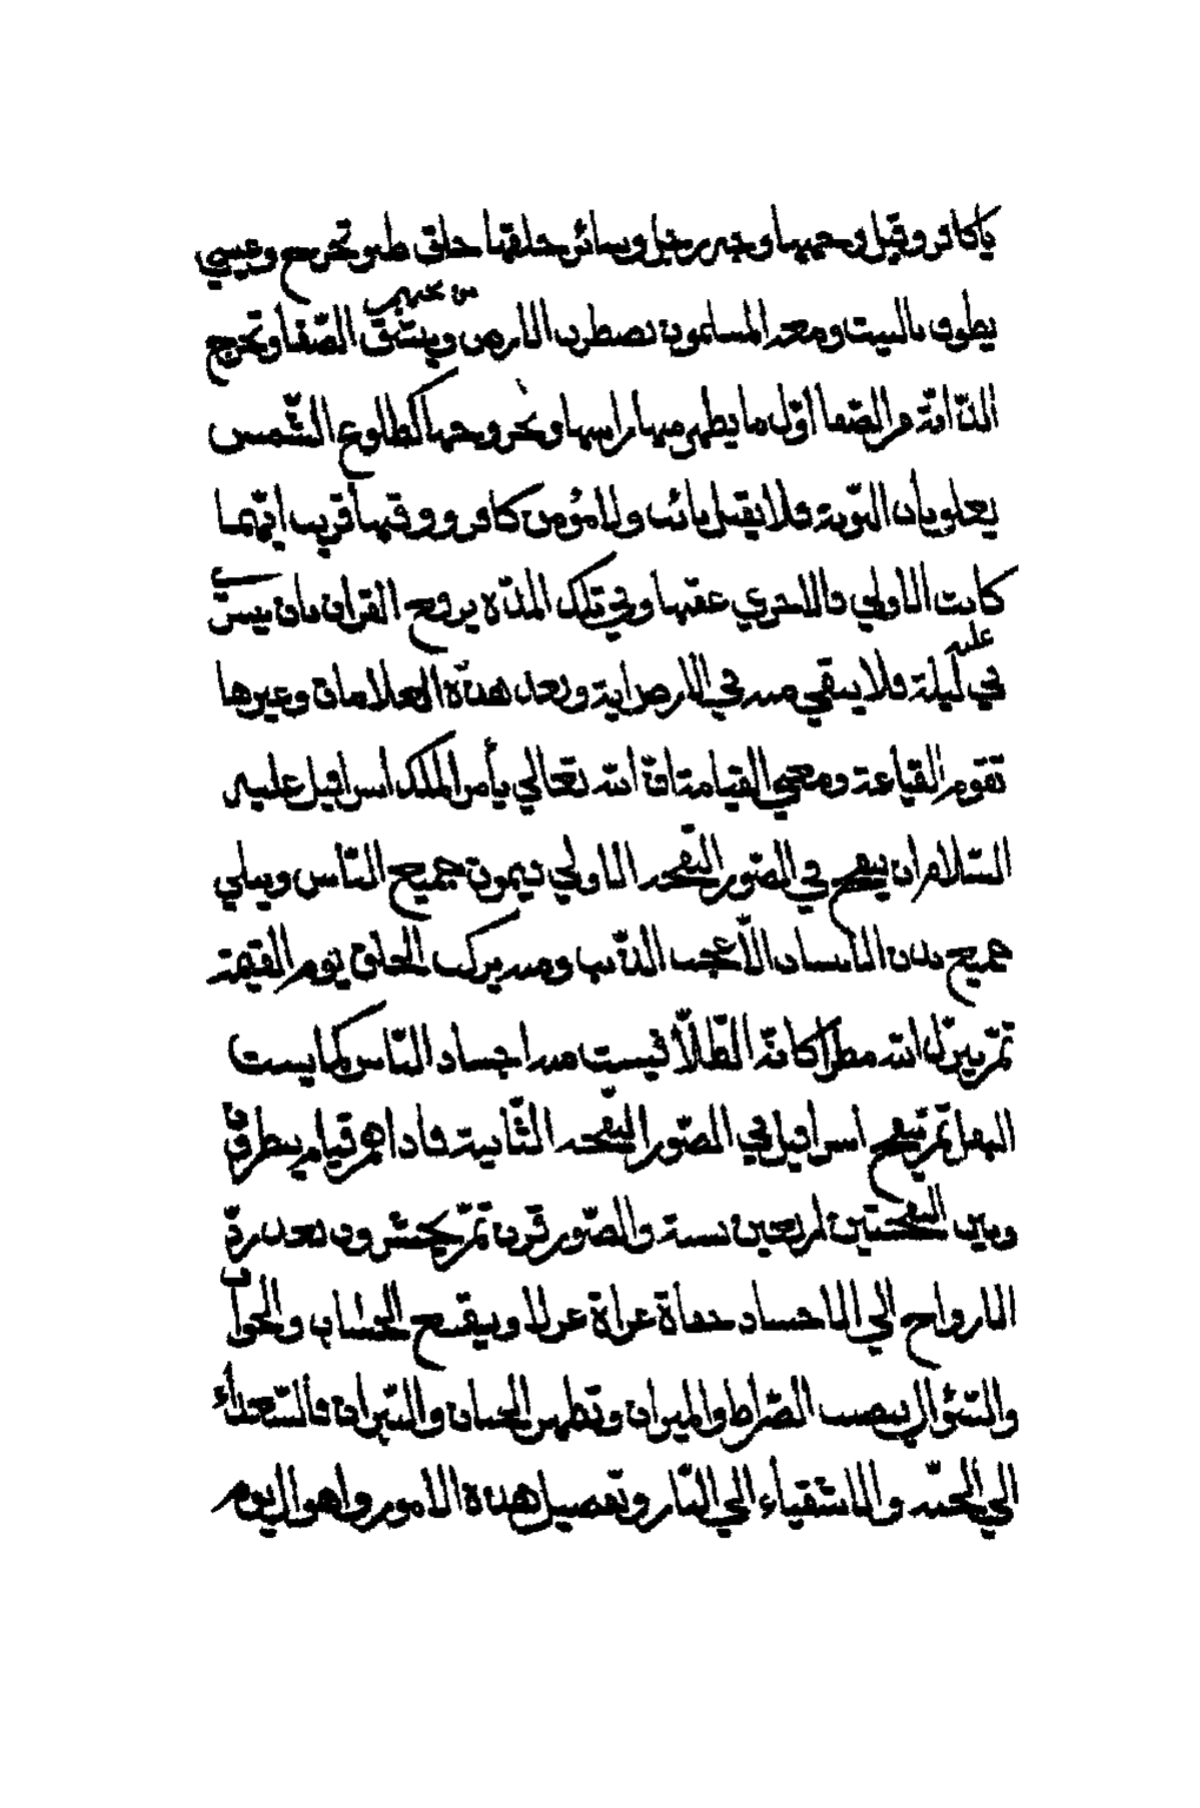 ياكافر وقيل وجهها وجه رجل وسائر خلقها خلق طير وتخرج وعيسي
يطوف بالبيت ومعه المسلمون تضطرب الارض من تحتهم وينشق الصّفا وتخرج
الدّابّة من الصّفا اوّل ما يظهر منها راسها وخروجها كطلوع الشّمس
يغلق باب التّوبة فلا يقبل تائب ولا مؤمن كافر ووقتها قريب ايّهما
كانت الاولي فالاخري عقبها وفي تلك المدّة يرفع القران بان يسري عليه
في ليلة فلا يبقي منه في الارض اية وبعد هذه العلامات وغيرها
تقوم القياعة ومعني القيامة ان الله تعالي يأمر الملك اسرافيل عليه
السّلام ان ينفخ في الصّور النّفخه الاولي فيموت جميع النّاس ويبلي
جميع بدن الانسان الّا عجب الذّنب ومنه يركب الخلق يوم القيمة
ثمّ ينزل الله مطرا كانّه الطّلّ فينبت منه اجساد النّاس كما ينبت
البقل ثمّ ينفخ اسرافيل في الصّور النّفخه الثّانية فاذا هم قيام ينظرون
وبين النفختين اربعين سنة والصّور قرن ثمّ يحشرون بعد ردّ
الارواح الي الاجساد حفاة عراة غرلا ويقع الحساب والجواب
والسّؤال ينصب الصّراط والميزان وتظهر الجنان والنّيران فالسّعداء
الي الجنّه والاشقياء الي النّار وتفصيل هذه الامور واهوال يوم